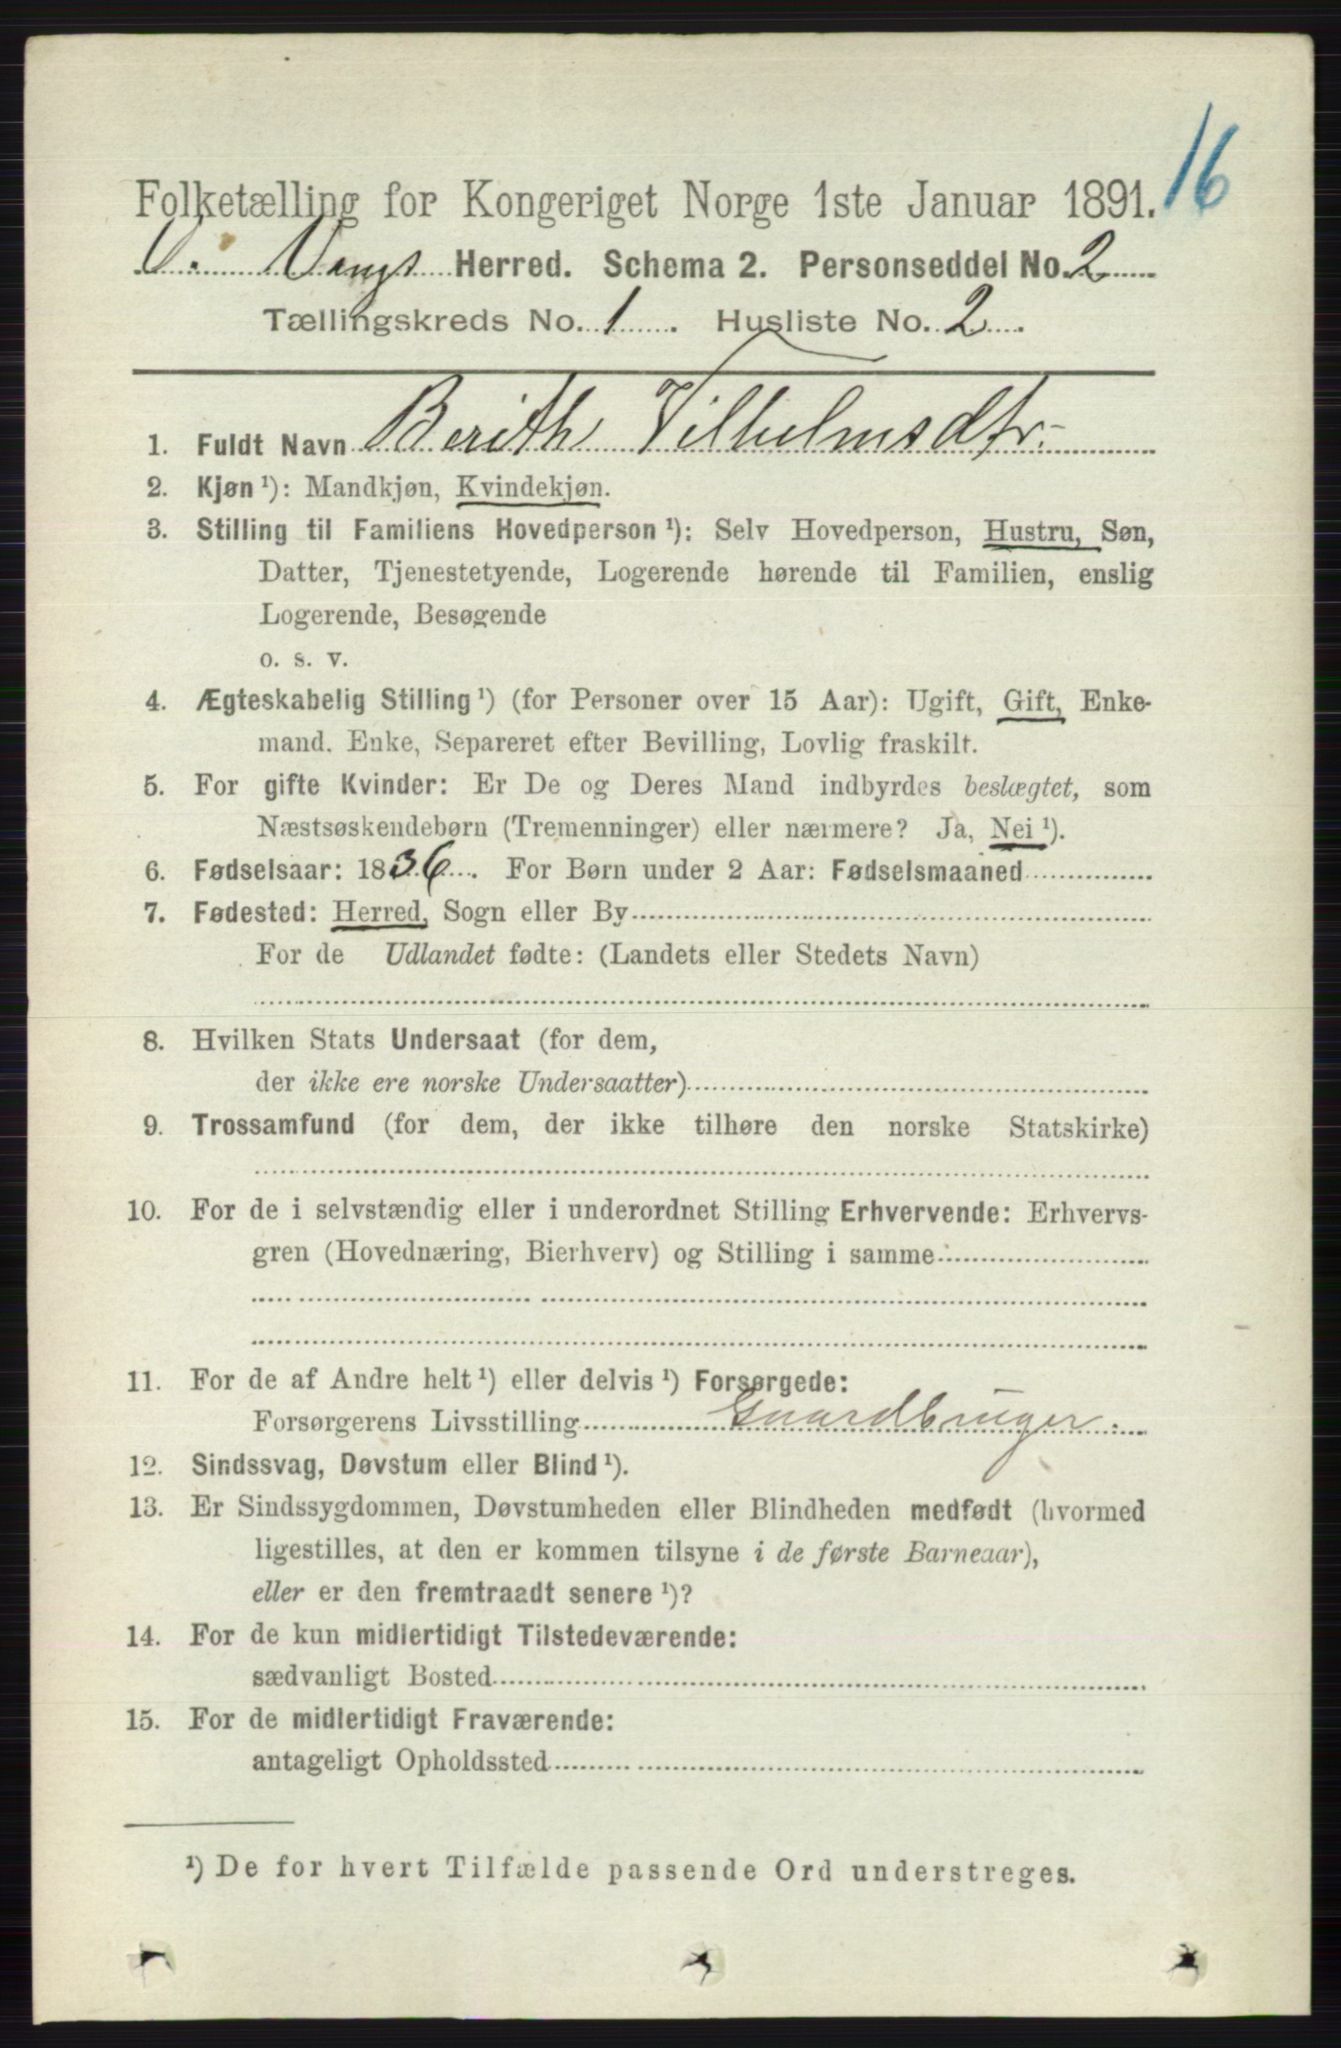 16
Folketælling for Kongeriget Norge 1ste Januar 1891.
V. Vangs Herred. Schema 2. Personseddel No. 2
Tællingskreds No. 1. Husliste No. 2.
1. Fuldt Navn Berith Vilhelmsdtr.
2. Kjøn ¹): Mandkjøn, Kvindekjøn.
3. Stilling til Familiens Hovedperson ¹): Selv Hovedperson, Hustru, Søn,
Datter, Tjenestetyende, Logerende hørende til Familien, enslig
Logerende, Besøgende
o. s. v.
4. Ægteskabelig Stilling ¹) (for Personer over 15 Aar): Ugift, Gift, Enke-
mand, Enke, Separeret efter Bevilling, Lovlig fraskilt.
5. For gifte Kvinder: Er De og Deres Mand indbyrdes beslægtet, som
Næstsøskendebørn (Tremenninger) eller nærmere? Ja, Nei ¹).
6. Fødselsaar: 1836. For Børn under 2 Aar: Fødselsmaaned
7. Fødested: Herred, Sogn eller By
For de Udlandet fødte: (Landets eller Stedets Navn)
8. Hvilken Stats Undersaat (for dem,
der ikke ere norske Undersaatter)
9. Trossamfund (for dem, der ikke tilhøre den norske Statskirke)
10. For de i selvstændig eller i underordnet Stilling Erhvervende: Erhvervs-
gren (Hovednæring, Bierhverv) og Stilling i samme
11. For de af Andre helt ¹) eller delvis ¹) Forsørgede:
Forsørgerens Livsstilling Gaardbruger.
12. Sindssvag, Døvstum eller Blind ¹).
13. Er Sindssygdommen, Døvstumheden eller Blindheden medfødt (hvormed
ligestilles, at den er kommen tilsyne i de første Barneaar),
eller er den fremtraadt senere ¹)?
14. For de kun midlertidigt Tilstedeværende:
sædvanligt Bosted
15. For de midlertidigt Fraværende:
antageligt Opholdssted
¹) De for hvert Tilfælde passende Ord understreges.